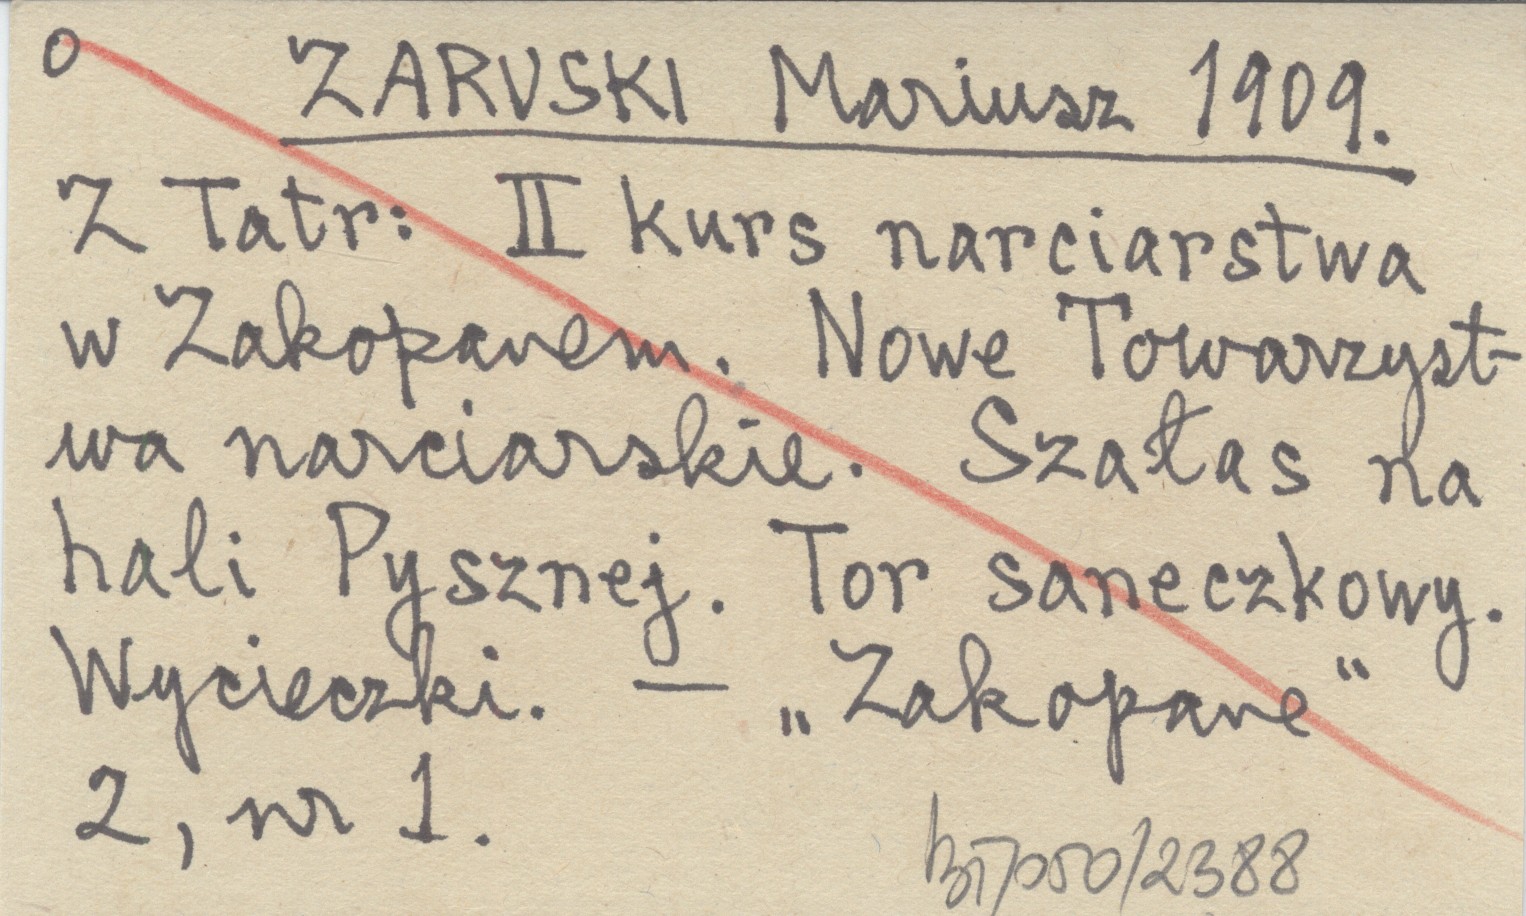 o ZARUSKI Mariusz 1909.
Z Tatr: II kurs narciarstwa
w Zakopanem. Nowe Towarzyst-
wa narciarskie. Szałas na
hali Pysznej. Tor saneczkowy.
Wycieczki. — „Zakopane“
2, nr 1.
/2388